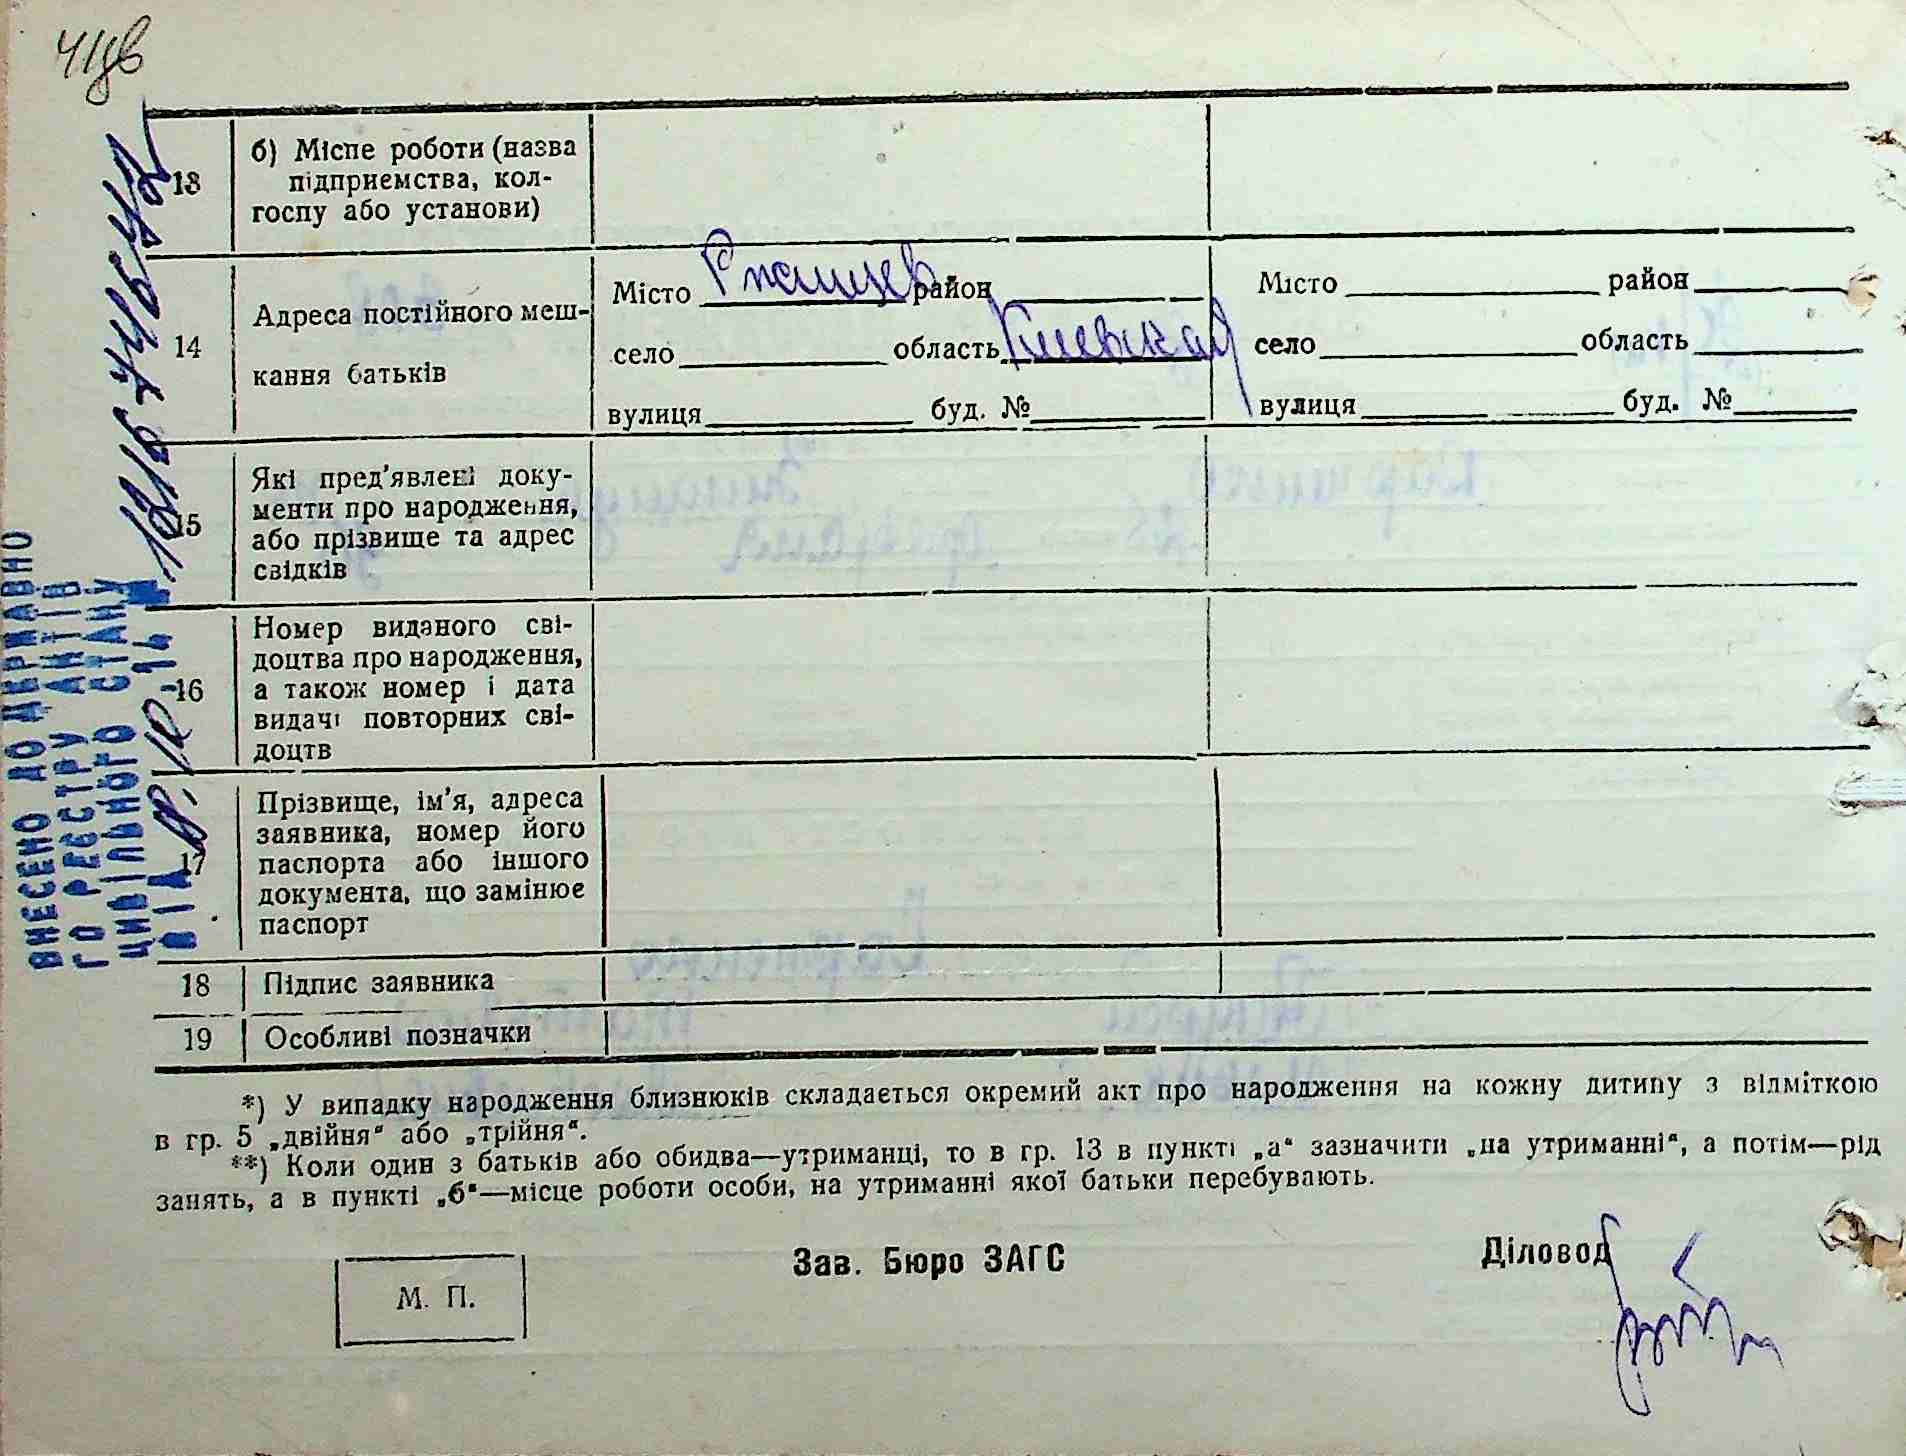 13
б) Місце роботи (назва
підприємства, кол-
госпу або установи)
14
Адреса постійного меш-
кання батьків
Місто Ржищев район
село область Киевская
вулиця буд. №
Місто район
село область
вулиця буд. №
15
Які пред'явлені доку-
менти про народження,
або прізвище та адрес
свідків
16
Номер виданого сві-
доцтва про народження,
а також номер і дата
видачі повторних сві-
доцтв
17
Прізвище, ім'я, адреса
заявника, номер його
паспорта або іншого
документа, що замінює
паспорт
18 Підпис заявника
19 Особливі позначки
*) У випадку народження близнюків складається окремий акт про народження на кожну дитину з відміткою
в гр. 5 „двійня“ або „трійня“.
**) Коли один з батьків або обидва—утриманці, то в гр. 13 в пункті „а“ зазначити „на утриманні“, а потім—рід
занять, а в пункті „б“—місце роботи особи, на утриманні якої батьки перебувають.
М. П.
Зав. Бюро ЗАГС
Діловод
ВНЕСЕНО ДО ДЕРЖАВНО
ГО РЕЄСТРУ АКТІВ
ЦИВІЛЬНОГО СТАНУ
ВІД